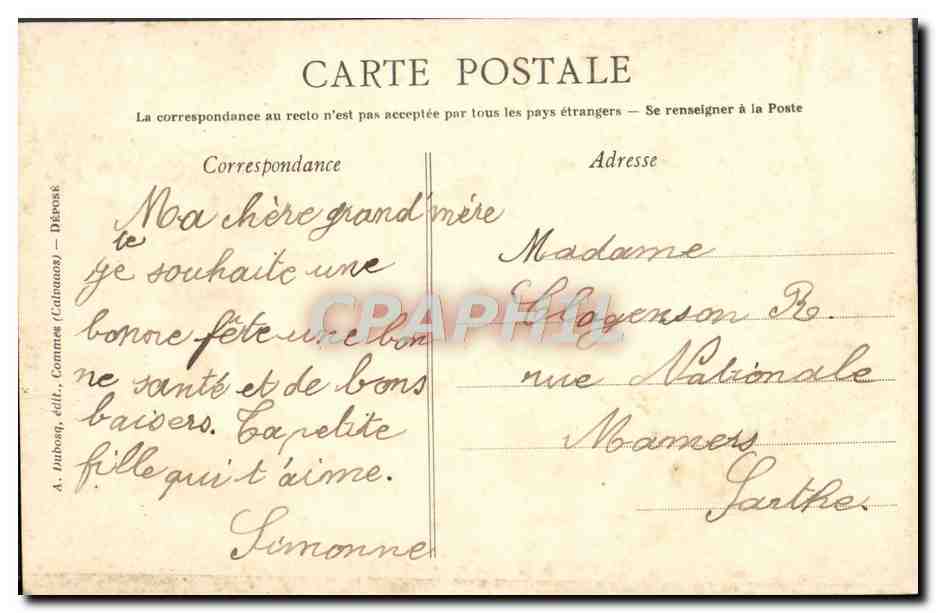 CARTE POSTALE
La correspondance au recto n'est pas acceptée par tous les pays étrangers — Se renseigner à la Poste
Correspondance
Ma chère grand'mère
te
je souhaite une
bonne fête une bon
ne santé et de bons
baisers. Ta petite
fille qui t'aime.
Simonne
Adresse
Madame
Clogenson R.
rue Nationale
Mamers
Sarthe.
A. Dubosq, édit., Commes (Calvados) — DÉPOSÉ
CPAPHIL